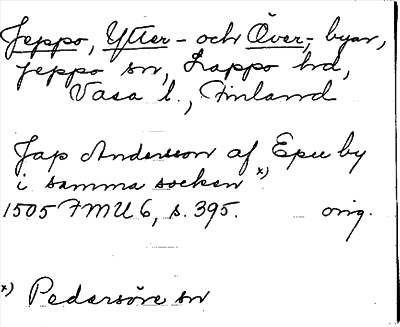 Jeppo, Ytter- och Över-, byar,
Jeppo sn, Lappo hd,
Vasa l., Finland
Jap Andersson af Epu by
i samma socken x)
1505 FMU 6, s. 395. orig.
x) Pedersöre sn